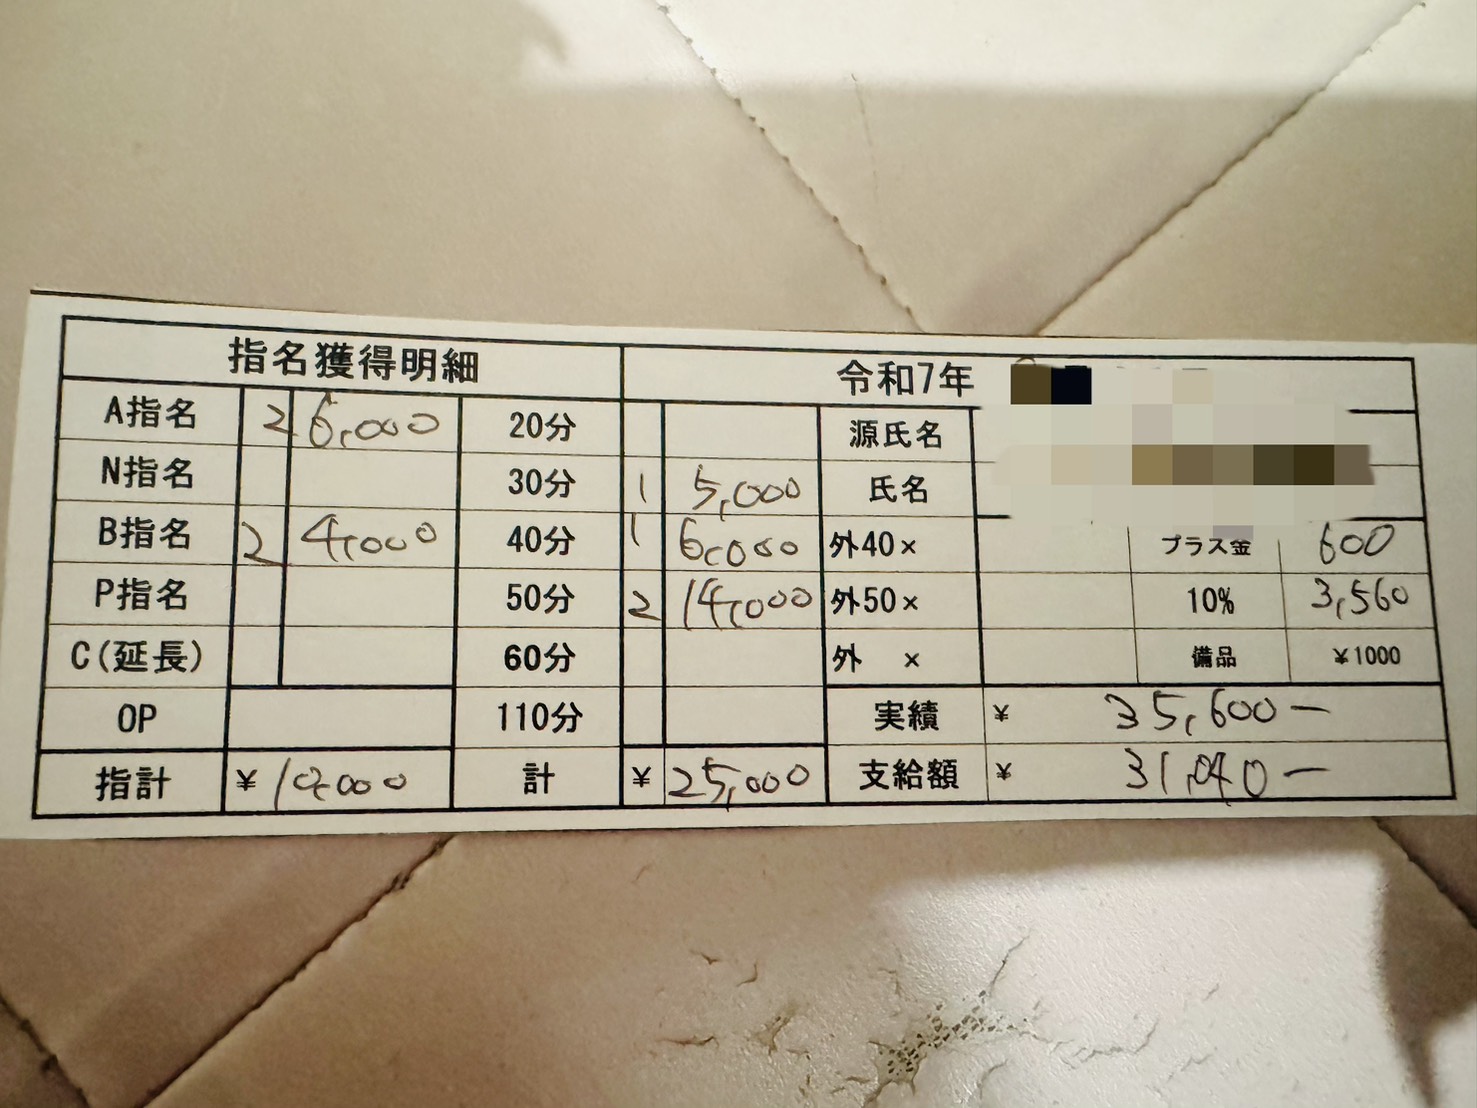 指名獲得明細 令和7年
A指名 2 6,000 20分 源氏名
N指名 30分 1 5,000 氏名
B指名 2 4,000 40分 1 6,000 外40× プラス金 600
P指名 50分 2 14,000 外50× 10% 3,560
C(延長) 60分 外 × 備品 ¥1000
OP 110分 実績 ¥ 35,600-
指計 ¥ 10,000 計 ¥ 25,000 支給額 ¥ 31,040-